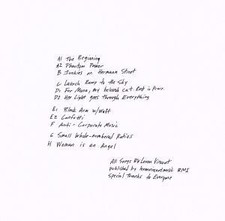 A1 The Beginning
A2 Phantom Power
B Junkies on Hermann Street
C Launch Ramp to the Sky
D1 For Mimi, my beloved cat Rest in Peace
D2 Her Light goes Through Everything
E1 Black Arm w/Wolff
E2 Confetti
F Anti-Corporate Music
G Small Whole-Numbered Ratios
H Woman is an Angel
All Songs By Loren
published by BMI
Special Thanks to Everyone